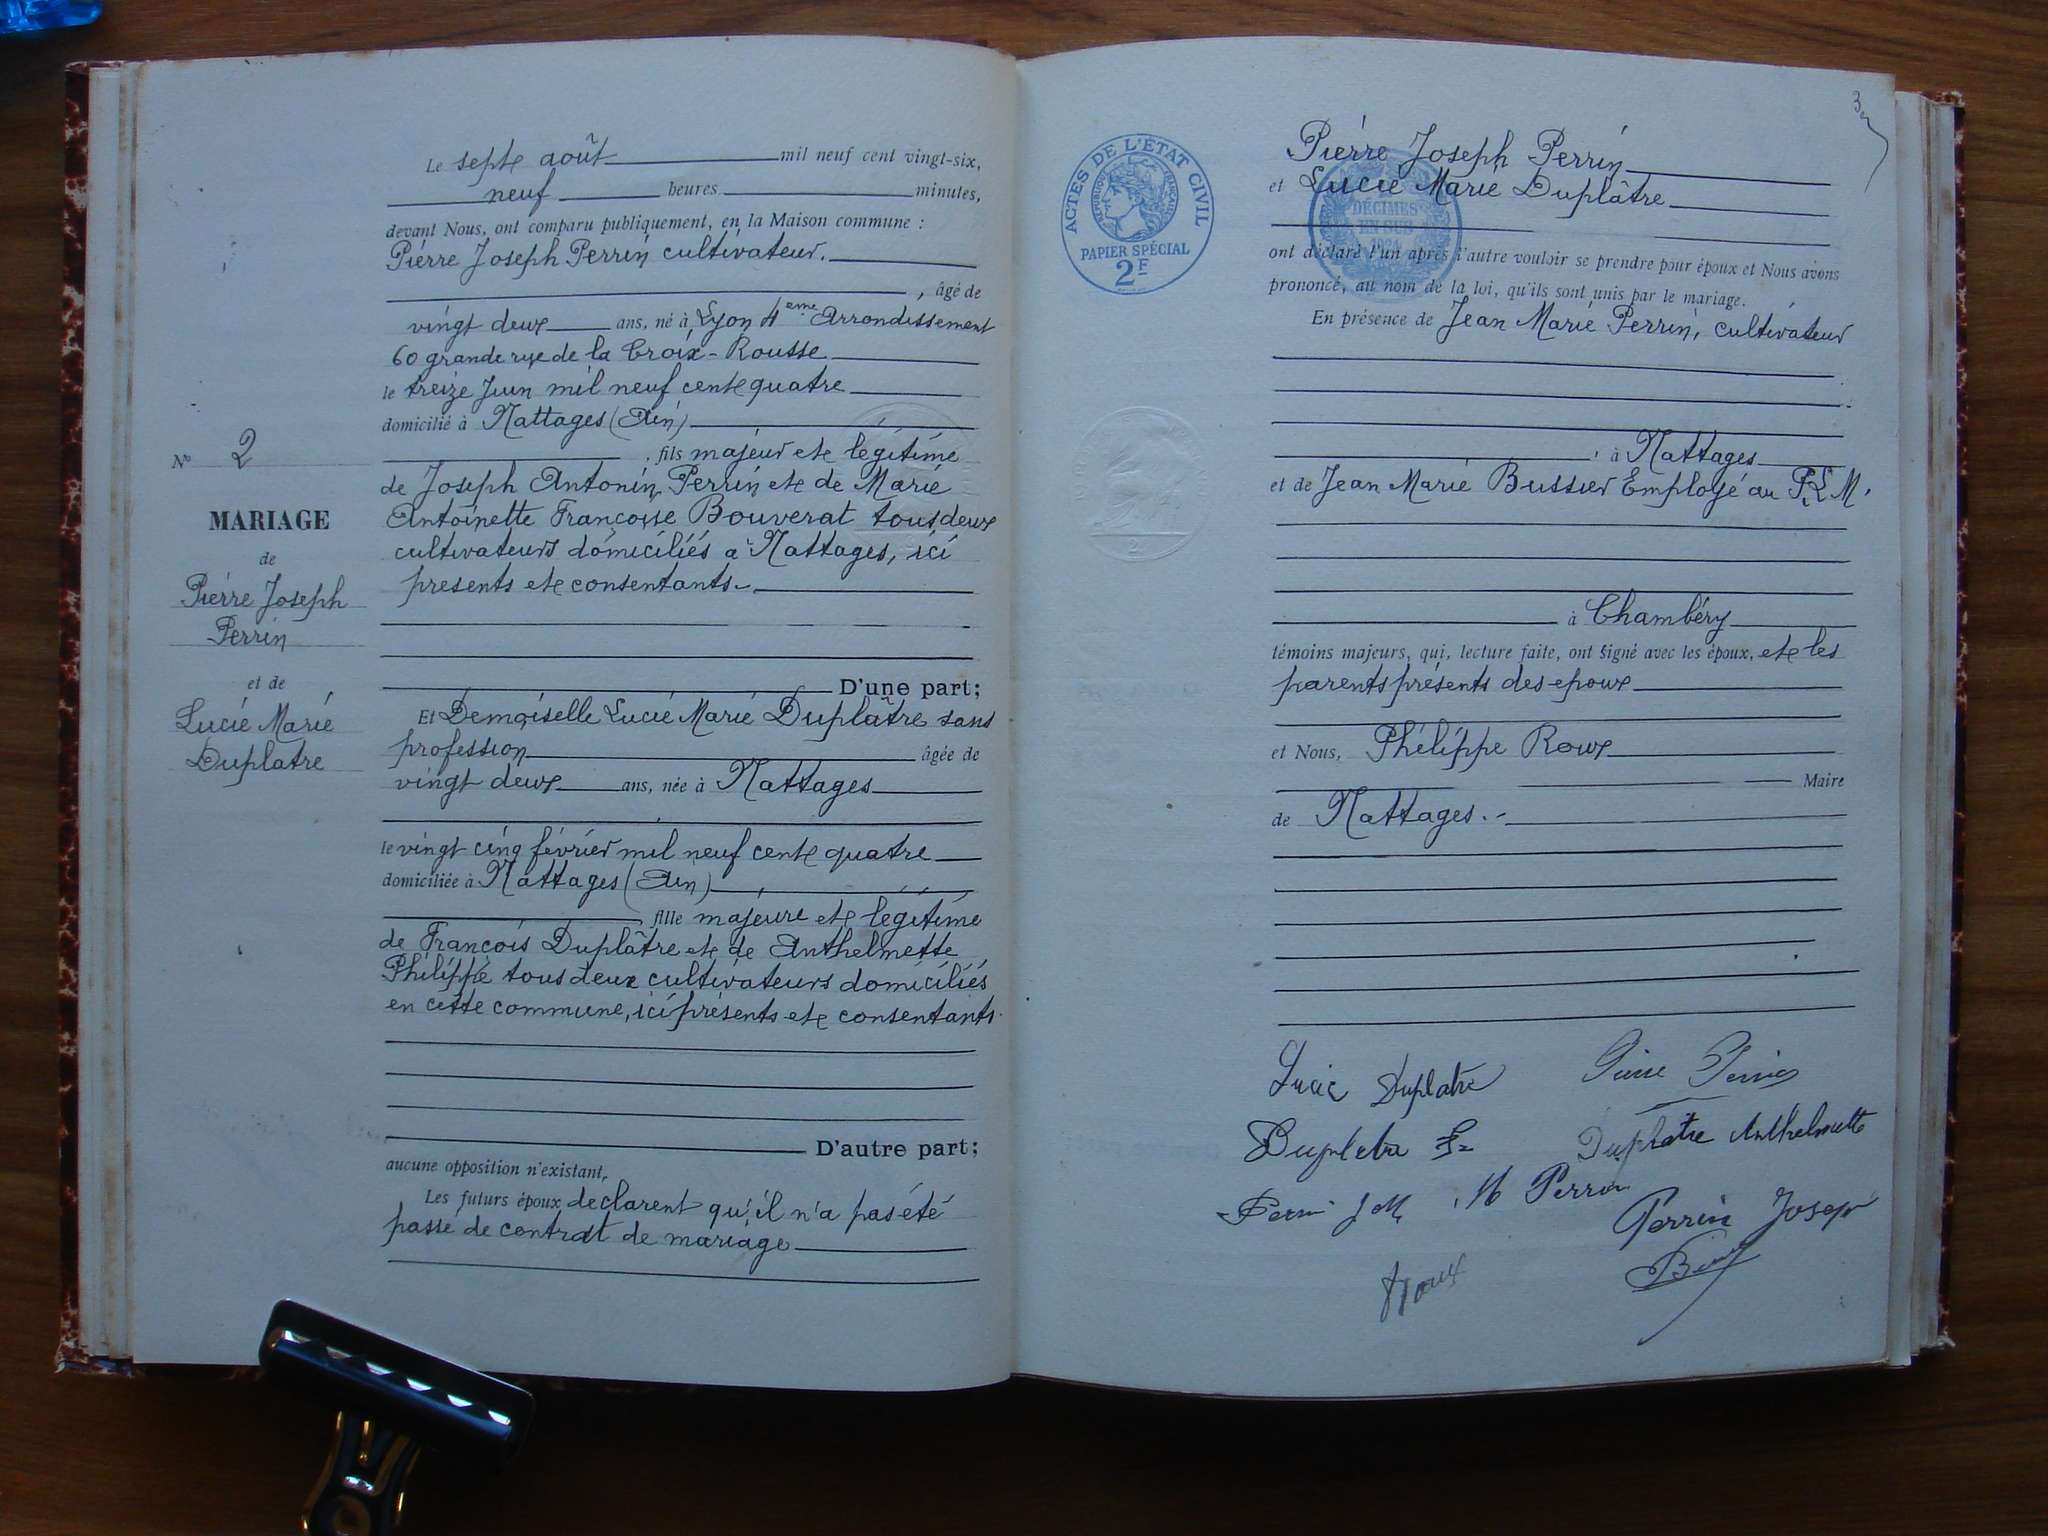 Le septe août mil neuf cent vingt-six,
neuf heures minutes,
devant Nous, ont comparu publiquement, en la Maison commune :
Pierre Joseph Perrin cultivateur.
, âgé de
vingt deux ans, né à Lyon 4eme Arrondissement
60 grande rue de la Croix-Rousse
le treize Juin mil neuf cent quatre
domicilié à Nattages (Ain)
, fils majeur et légitime
de Joseph Antonin Perrin et de Marie
Antoinette Françoise Bouverat tous deux
cultivateurs domiciliés à Nattages, ici
presents et consentants.-
D'une part;
Et Demoiselle Lucie Marie Duplâtre sans
profession âgée de
vingt deux ans, née à Nattages
le vingt cinq février mil neuf cent quatre
domiciliée à Nattages (Ain)
, fille majeure et légitime
de François Duplâtre et de Anthelmette
Philippe tous deux cultivateurs domiciliés
en cette commune, ici présents et consentants.
D'autre part;
aucune opposition n'existant,
Les futurs époux declarent qu'il n'a pas été
passé de contrat de mariage
No 2
MARIAGE
de
Pierre Joseph
Perrin
et de
Lucie Marie
Duplatre
3
ACTES DE L'ÉTAT CIVIL
RÉPUBLIQUE FRANÇAISE
PAPIER SPÉCIAL
2F
2
DÉCIMES
EN SUS
1924
Pierre Joseph Perrin
et Lucie Marie Duplâtre
ont déclaré l'un après l'autre vouloir se prendre pour époux et Nous avons
prononcé, au nom de la loi, qu'ils sont unis par le mariage.
En présence de Jean Marie Perrin, cultivateur
, à Nattages
et de Jean Marie Bussier Employé au P.L.M.
à Chambéry
témoins majeurs, qui, lecture faite, ont signé avec les époux, et les
parents présents des epoux
et Nous, Philippe Roux
Maire
de Nattages.-
Lucie Duplatre Pierre Perrin
Duplatre Duplatre Anthelmette
Perrin J M M Perrin
Perrin Joseph
Roux